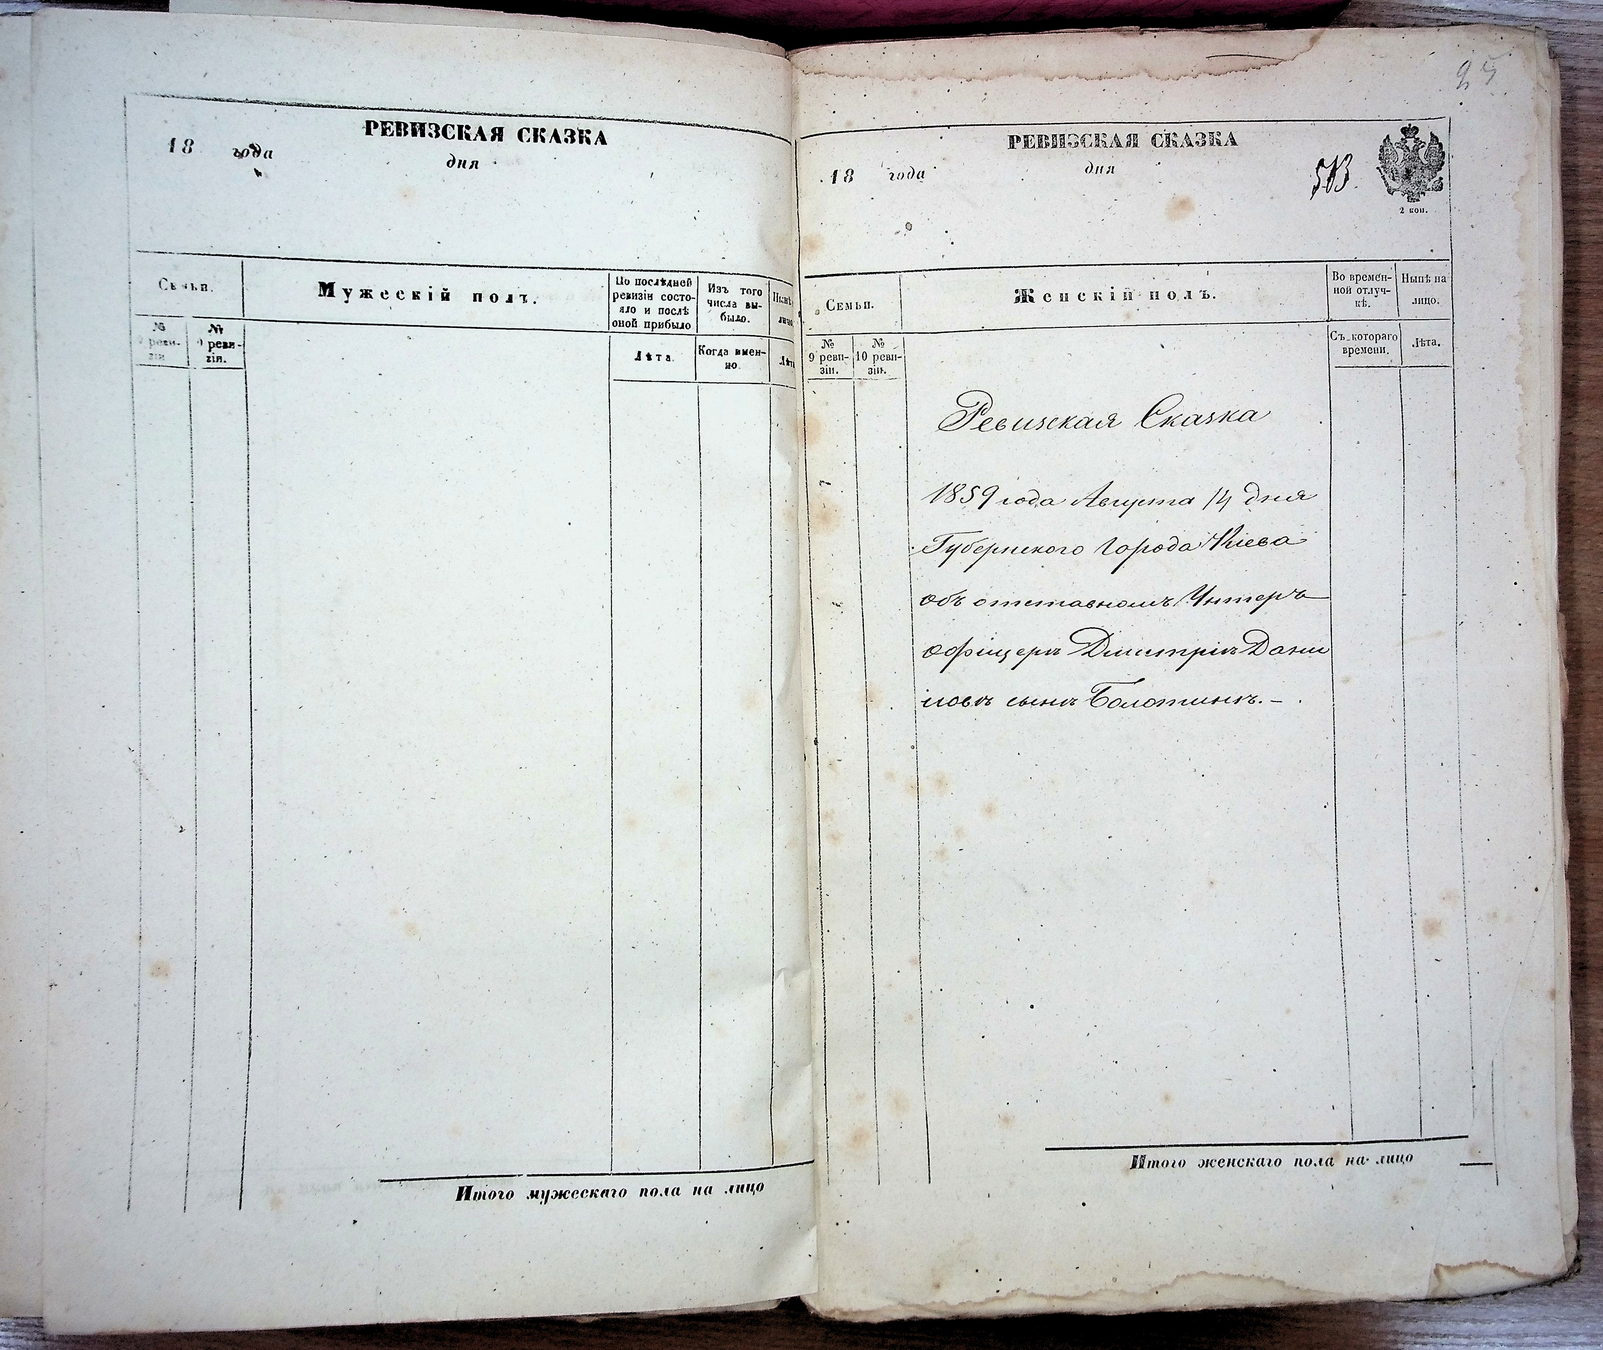 РЕВИЗСКАЯ СКАЗКА
18 года дня
Семьи.
Мужескій полъ.
По послѣдней ревизіи состояло и послѣ оной прибыло
Изъ того числа выбыло.
№ ревизіи.
№ ревизіи.
Лѣта.
Когда именно.
Лѣта
Итого мужескаго пола на лицо
25
РЕВИЗСКАЯ СКАЗКА
18 года дня
503.
2 коп.
Семьи.
Женскій полъ.
Во временной отлучкѣ.
Нынѣ на лицо.
№ 9 ревизіи.
№ 10 ревизіи.
Съ котораго времени.
Лѣта.
Ревизская Сказка
1859 года Августа 14 дня
Губернского Города Кіева
объ отставномъ Унтеръ
офіцерѣ Дмитріѣ Дани
ловѣ сынѣ Болотинѣ. –
Итого женскаго пола на лицо